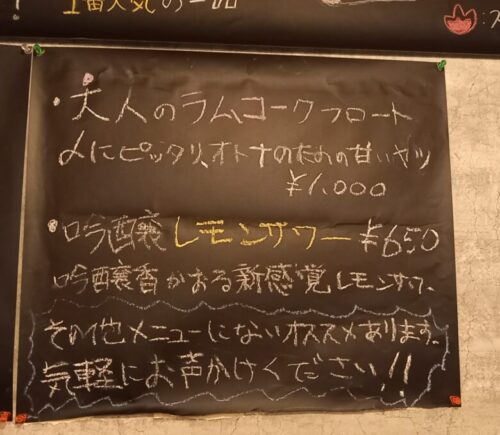 1番人気の一品
・大人のラムコークフロート
〆にピッタリ、オトナのための甘いヤツ
¥1,000
・吟醸レモンサワー ¥650
吟醸香かおる新感覚レモンサワー
その他メニューにないオススメあります。
気軽にお声かけください!!